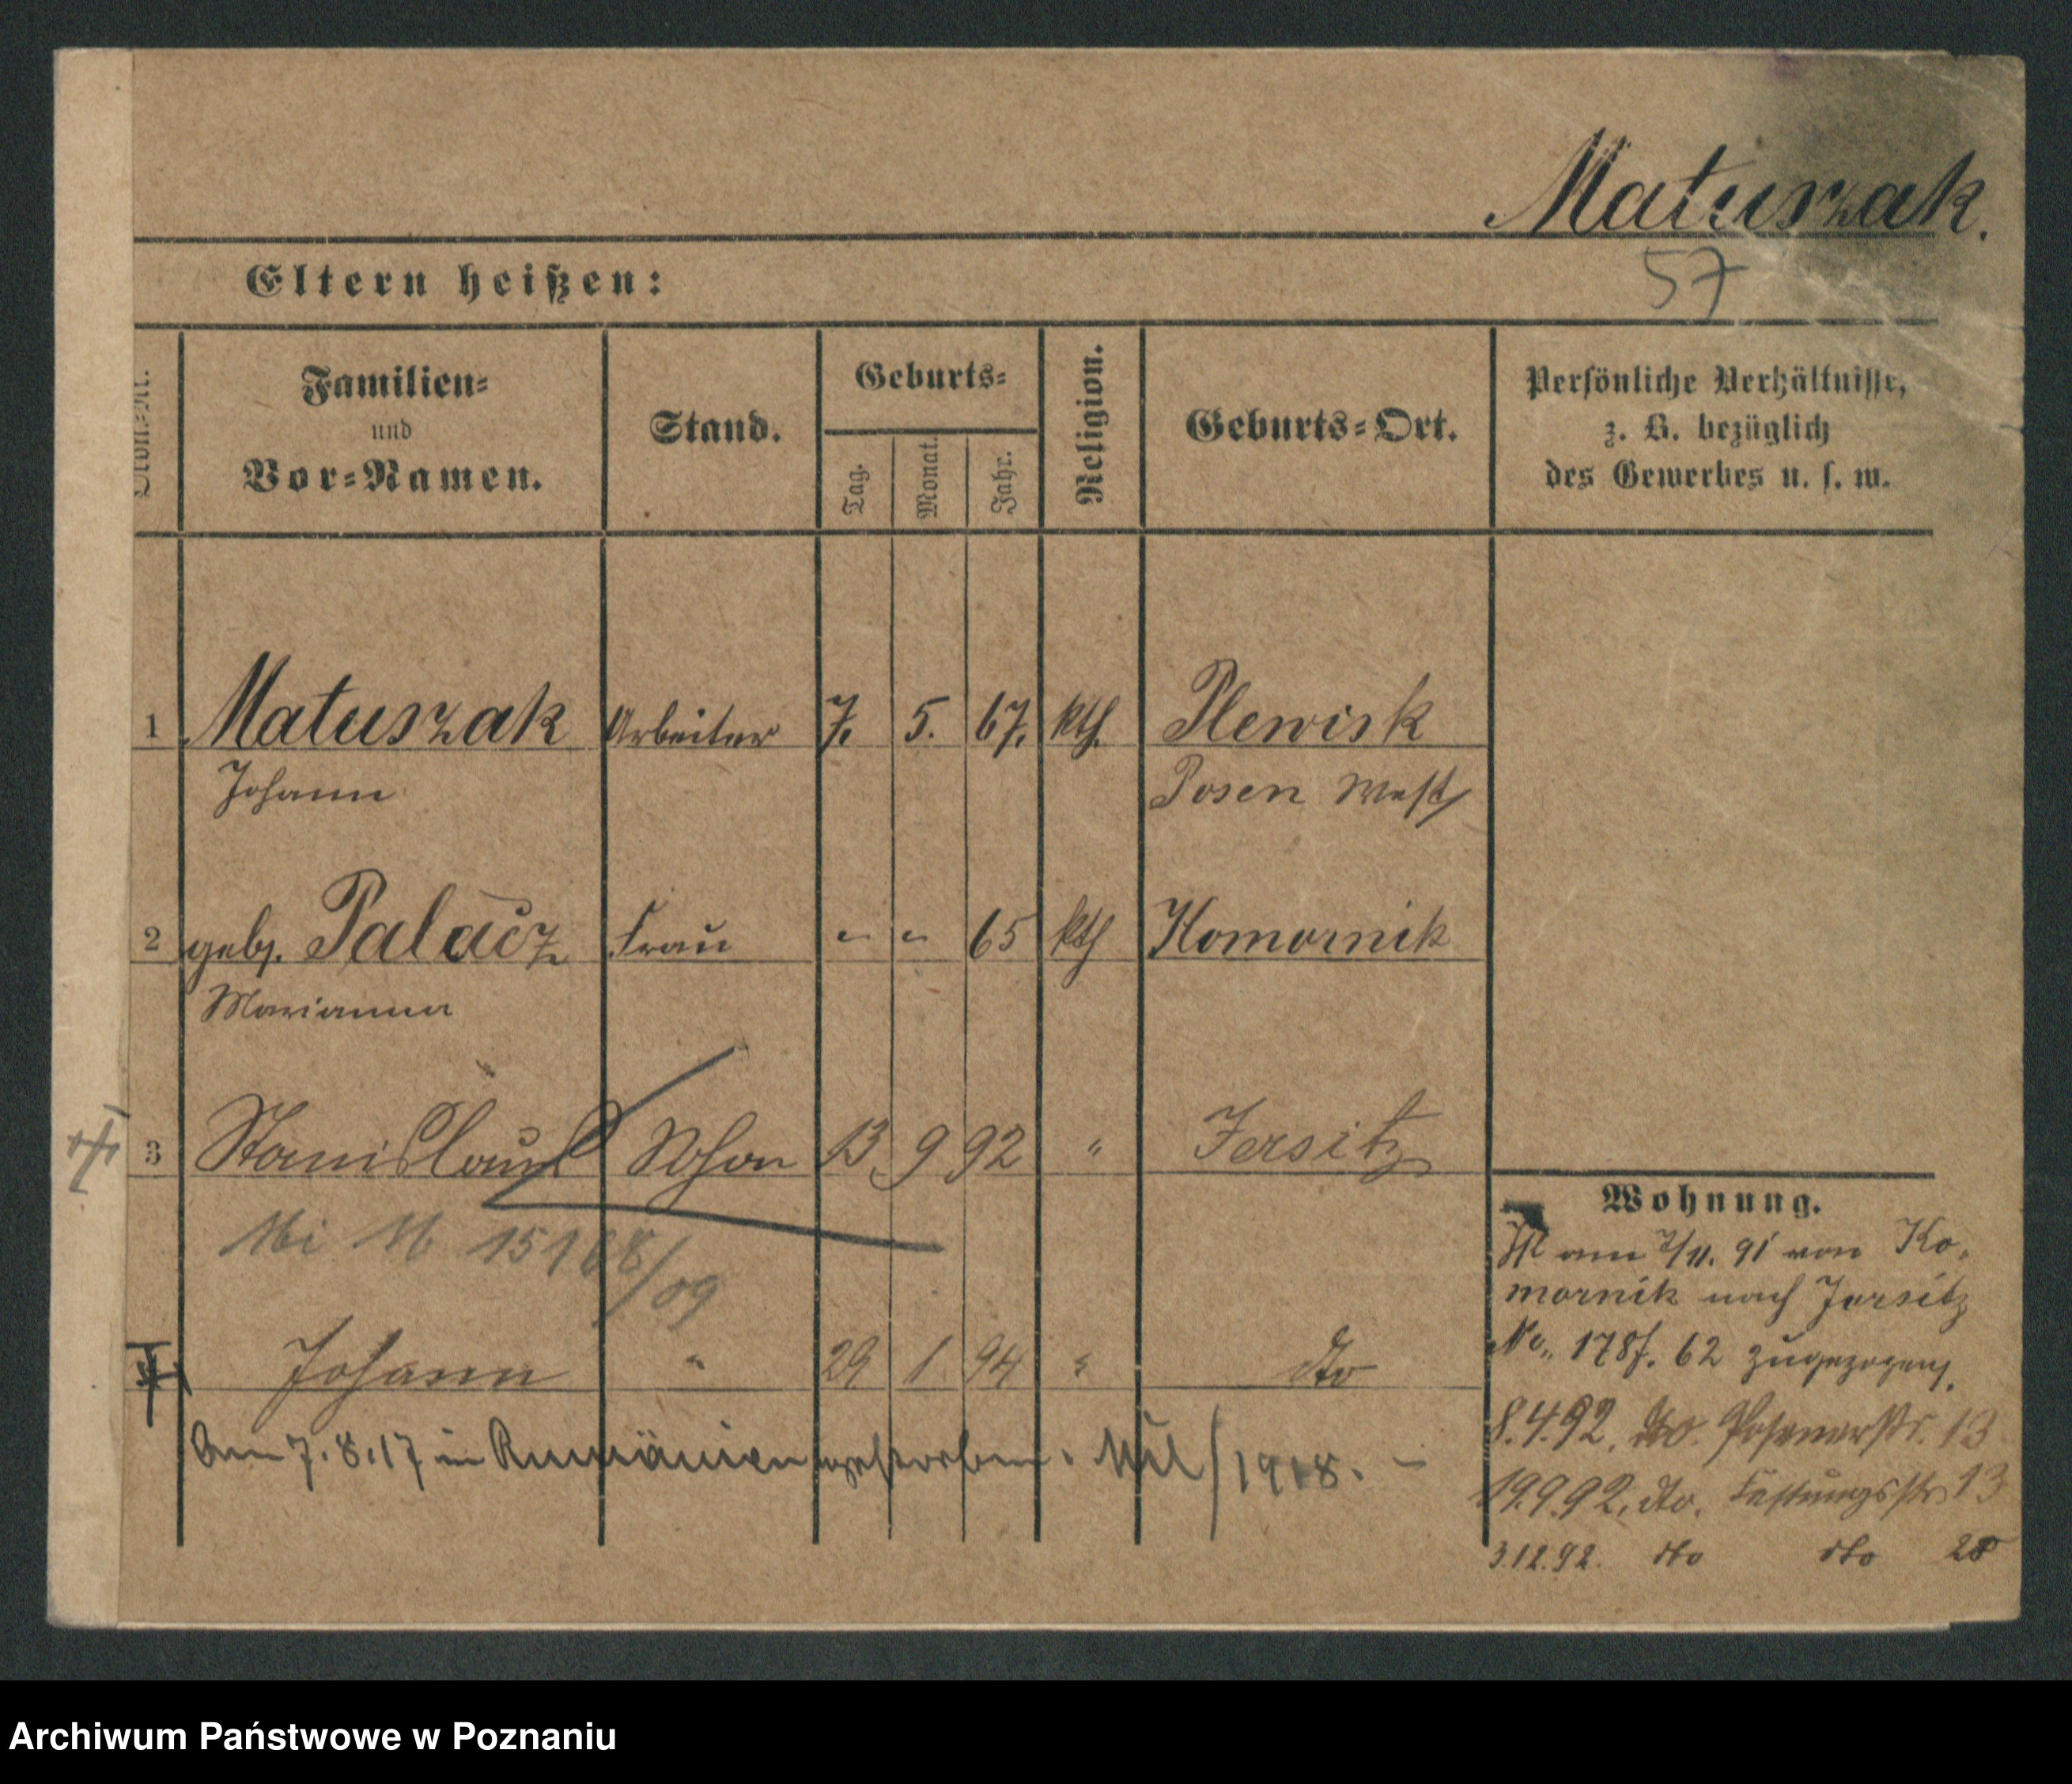 Matuszak.
57
Eltern heißen:
Ordn.=Nr.
Familien=
und
Vor=Namen.
Stand.
Geburts=
Tag.
Monat.
Jahr.
Religion.
Geburts=Ort.
Persönliche Verhältnisse,
z. B. bezüglich
des Gewerbes u. s. w.
1 Matuszak Arbeiter 7. 5. 67. kth. Plewisk
Johann Posen West
2 geb. Palacz Frau " " 65 kth Komornik
Marianna
3 Stanislaus Sohn 13 9 92 " Jersitz
15168/09
Johann " 29 1 94 " dto
Am 7.8.17 in Rumänien gestorben. Mil/1918. –
Wohnung.
am 2/11. 91 von Ko-
mornik nach Jersitz
No. 178f. 62 zugezogen.
8.4.92. dto. Posenerstr. 13
19.9.92. dto. Festungsstr 13
3.12.92. dto dto 28
Archiwum Państwowe w Poznaniu